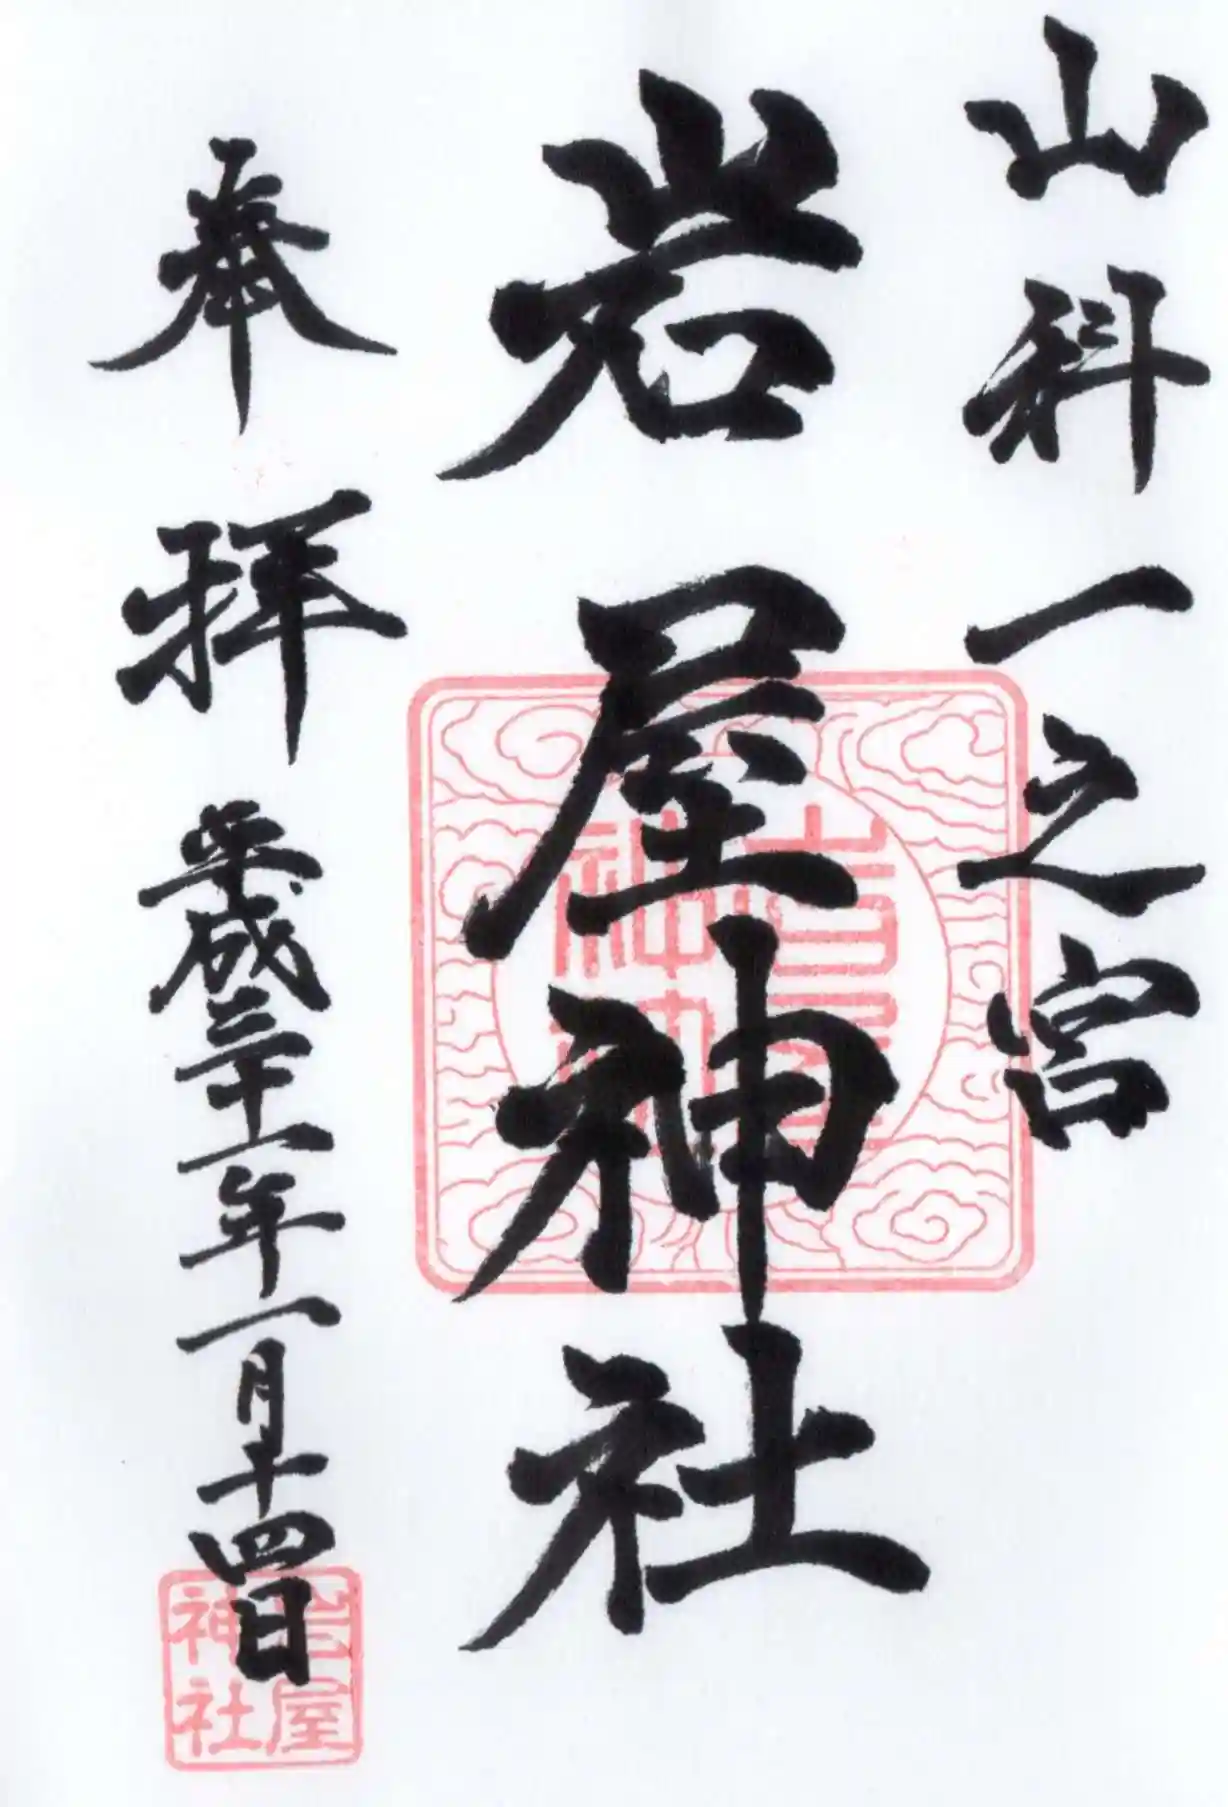 山科一之宮
岩屋神社
奉拝
平成三十一年一月十四日
岩屋神社
岩屋神社